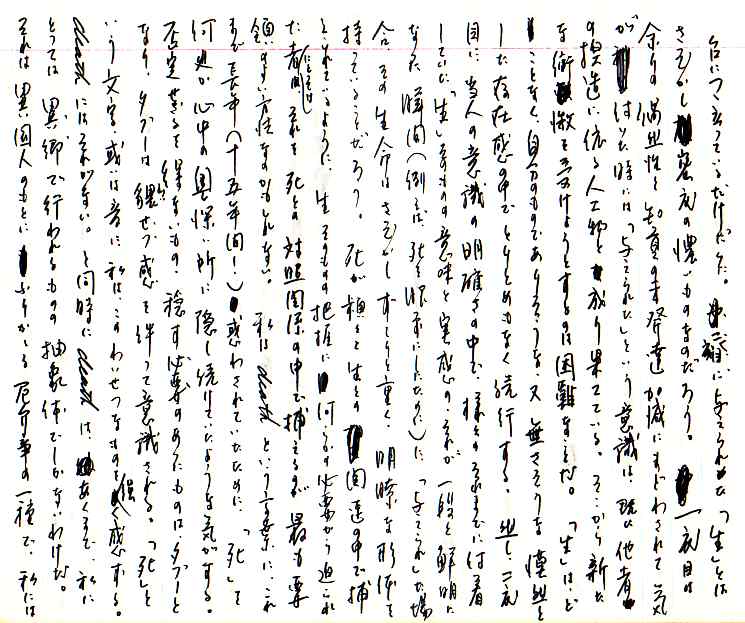 台につ立っているだけだった。第二義に与えられた「生」とは
さぞかし裏衣の懐いものなのだろう。一度目は
余りの偶然性と知育の未発達加減にまどわされて気
が付いた時には「与えられた」という意識は、既に他者
の捏造に依る人工物と成り果てている。そこから新た
な衝撃を受けようとするのは困難なことだ。「生」は、ど
ことなく、自分のものでありそうな、又無さそうな漠然と
した存在感の中でとりとめもなく続行する。然し、二度
目に当人の意識の明確さの中で、様々のそれまでに付着
していた「生」そのものの意味と実感の、それが一段と鮮明に
なった瞬間(例えば、死を眼前にしたのちに)に「与えられ」た場
合、その生命はさぞかしずっしりと重く、明瞭な形体を
持っていることだろう。死が頑として生との関連の中で捕
えられているように、生そのものの把握に何らかの必要から迫られ
た者にとってはそれを死との対照関係の中で捕えるのが最も要
領のいい方法なのかもしれない。私はdeathという言葉に、これ
まで長年(十五年間!)惑わされていたのに、「死」を
何処か心中の奥深い所に隠し続けていたような気がする。
否定せざるを得ないもの、隠す必要のあったものは、タブーと
なり、タブーは猥せつ感を伴って意識される。「死」と
いう文字、或いは音に、私は、このわいせつなものを強く感ずる。
deathにはそれがない。と同時にdeathは、あくまで、私に
とっては異郷で行われるものの抽象体でしかないわけだ。
それは異国人のもとにふりかかる厄介事の一種で、私には